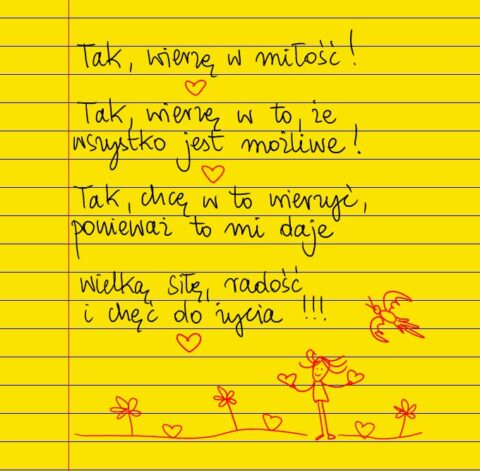 Tak, wierzę w miłość!
Tak, wierzę w to, że
wszystko jest możliwe!
Tak, chcę w to wierzyć,
ponieważ to mi daje
wielką siłę, radość
i chęć do życia !!!